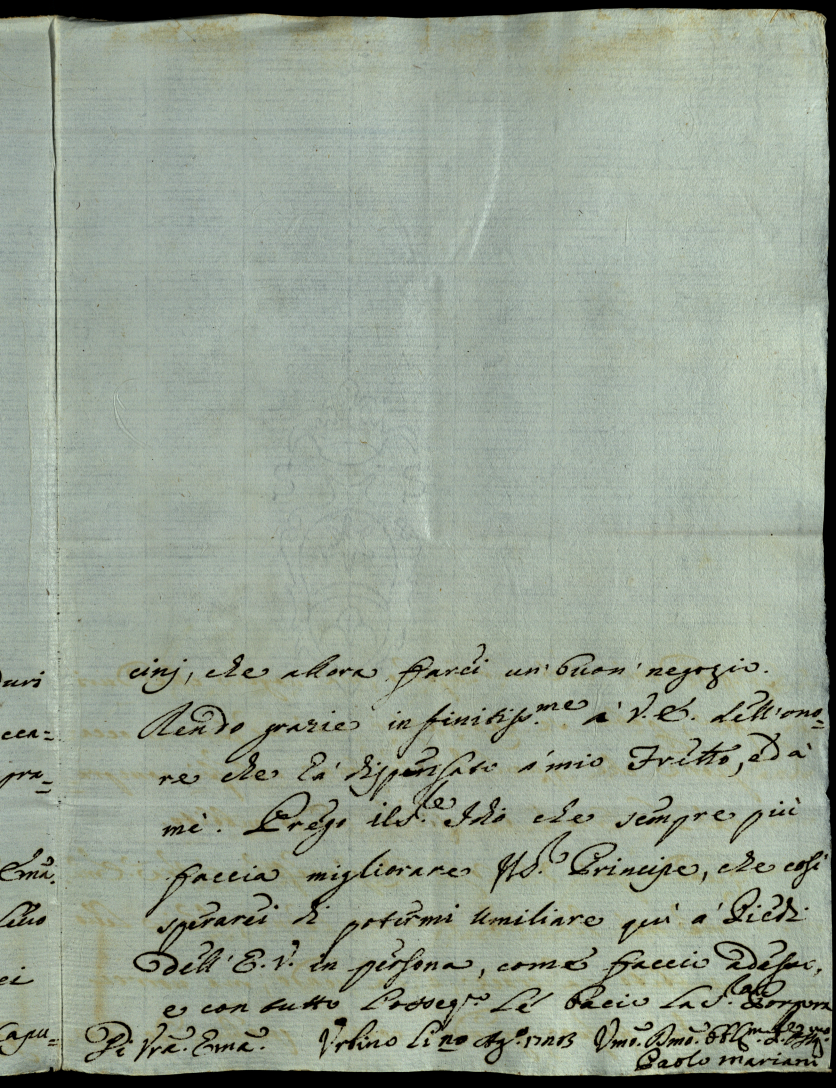 duri
cea=
pra=
Ema.
ci
Capu=
cinj, che allora farei un' buon' negozio.
Rendo grazie infinitiss.me à V. E. dell'ono=
re che hà dispensato à mio Frêllo, ed à
mè. Prego il S.re Idio che sempre più
faccia migliorare il S.r Principe, che così
sperarei di potermi umiliare qui à Piedi
dell' E. V. in persona, come faccio adesso,
e con tutto l'osseq.o Le bacio la S. Porpora
Di Vrã. Emã. Urbino li Ag.o Vmo. Dmo.
Paolo Mariani